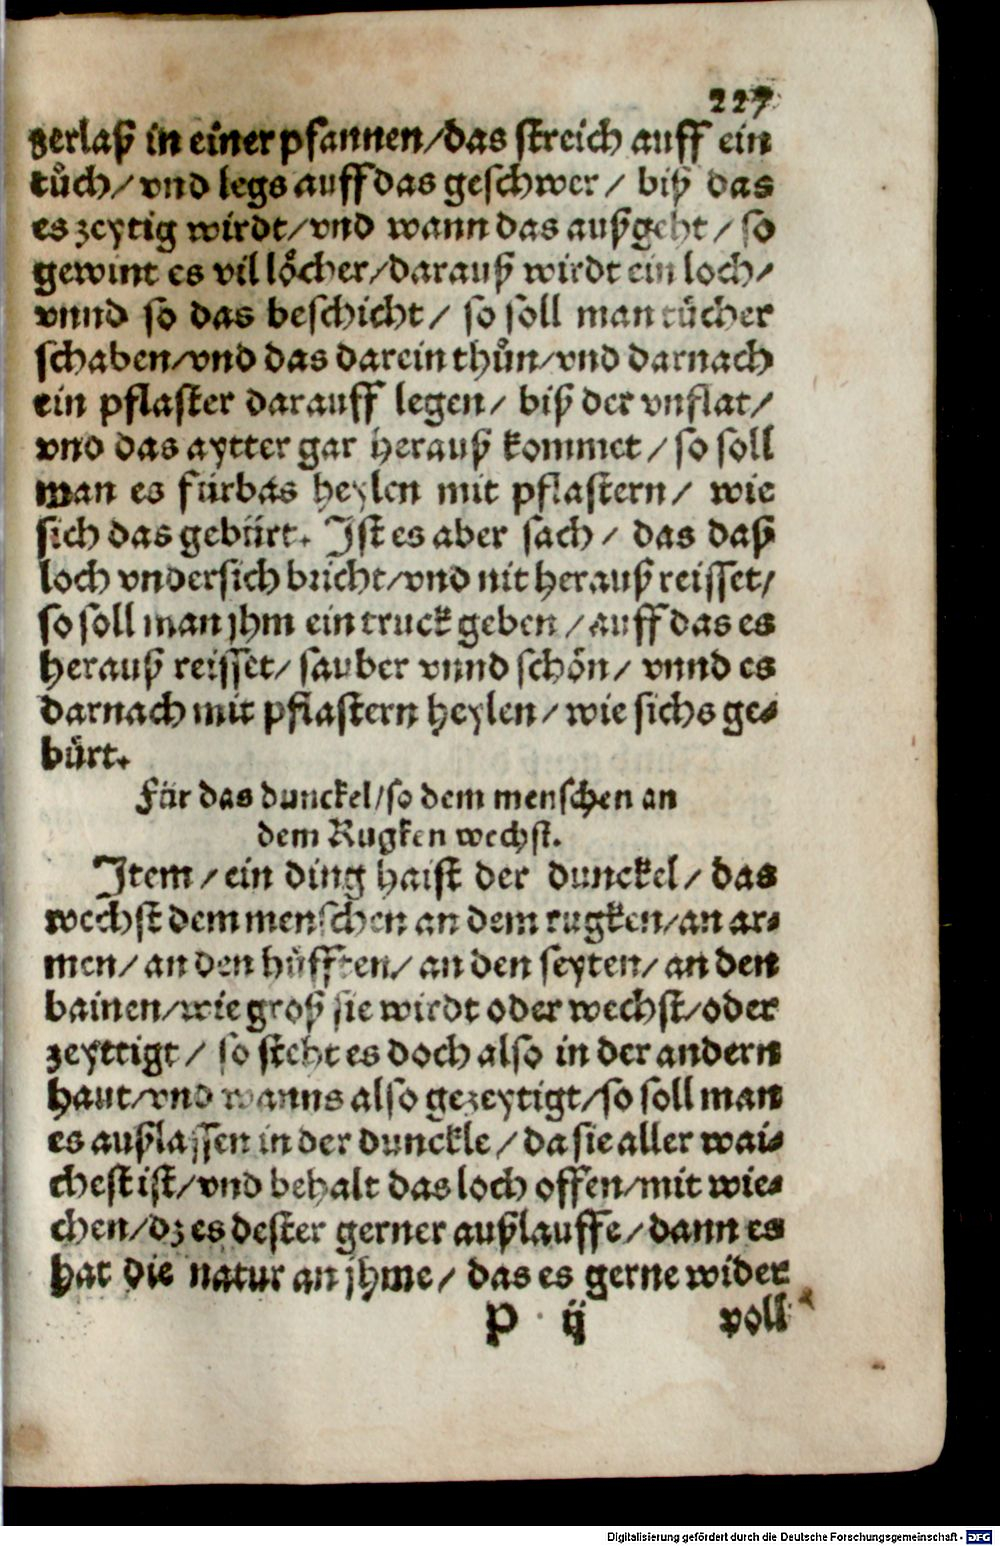 227
zerlaß in einer pfannen/das streich auff ein
tuͦch/vnd legs auff das geschwer/ biß das
es zeytig wirdt/vnd wann das außgeht/so
gewint es vil loͤcher/darauß wirdt ein loch/
vnnd so das beschicht/ so soll man tuͤcher
schaben/vnd das darein thuͦn/vnd darnach
ein pflaster darauff legen/ biß der vnflat/
vnd das aytter gar herauß kommet/so soll
man es fürbas heylen mit pflastern/ wie
sich das gebürt. Ist es aber sach/ das daß
loch vndersich bricht/vnd nit herauß reisset/
so soll man jhm ein truck geben/auff das es
herauß reisset/ sauber vnnd schoͤn/ vnnd es
darnach mit pflastern heylen/wie sichs ge⸗
bürt.
Für das dunckel/so dem menschen an
dem Rugken wechst.
Item/ein ding haist der dunckel/das
wechst dem menschen an dem rugken/an ar⸗
men/an den hüfften/an den seyten/an den
bainen/wie groß sie wirdt oder wechst/oder
zeyttigt/ so steht es doch also in der andern
haut/vnd wanns also gezeytigt/so soll man
es außlassen in der dunckle/da sie aller wai⸗
chest ist/vnd behalt das loch offen/mit wie⸗
chen/dz es dester gerner außlauffe/dann es
hat die natur an jhme/ das es gerne wider
P ij voll
Digitalisierung gefördert durch die Deutsche Forschungsgemeinschaft - DFG